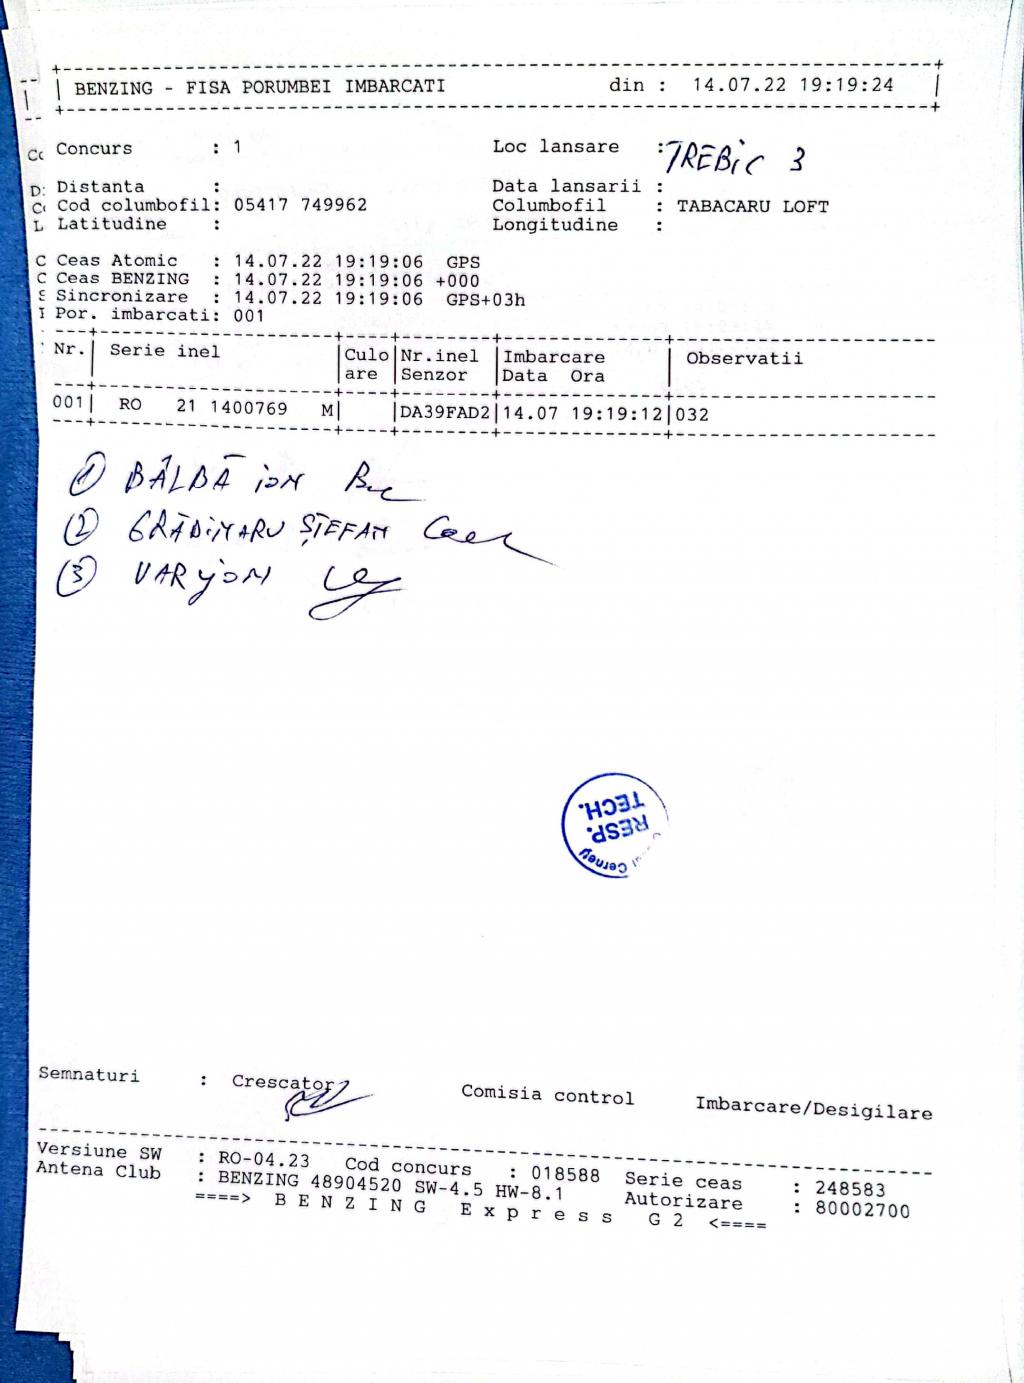 BENZING - FISA PORUMBEI IMBARCATI din : 14.07.22 19:19:24
Concurs : 1 Loc lansare : TREBIC 3
Distanta : Data lansarii :
Cod columbofil: 05417 749962 Columbofil : TABACARU LOFT
Latitudine : Longitudine :
Ceas Atomic : 14.07.22 19:19:06 GPS
Ceas BENZING : 14.07.22 19:19:06 +000
Sincronizare : 14.07.22 19:19:06 GPS+03h
Por. imbarcati: 001
Nr.| Serie inel |Culo|Nr.inel |Imbarcare | Observatii
|are |Senzor |Data Ora |
001| RO 21 1400769 M| |DA39FAD2|14.07 19:19:12|032
① BÂLBĂ ION
② GRĂDINARU ȘTEFAN
③ VAR ION
RESP.
TECH.
Cerney
Semnaturi : Crescator Comisia control Imbarcare/Desigilare
Versiune SW : RO-04.23 Cod concurs : 018588 Serie ceas : 248583
Antena Club : BENZING 48904520 SW-4.5 HW-8.1 Autorizare : 80002700
====> B E N Z I N G E x p r e s s G 2 <====